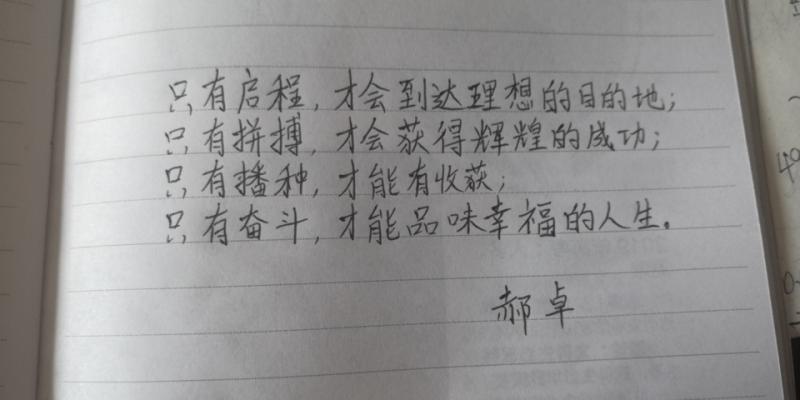 只有启程，才会到达理想的目的地；
只有拼搏，才会获得辉煌的成功；
只有播种，才能有收获；
只有奋斗，才能品味幸福的人生。
郝卓